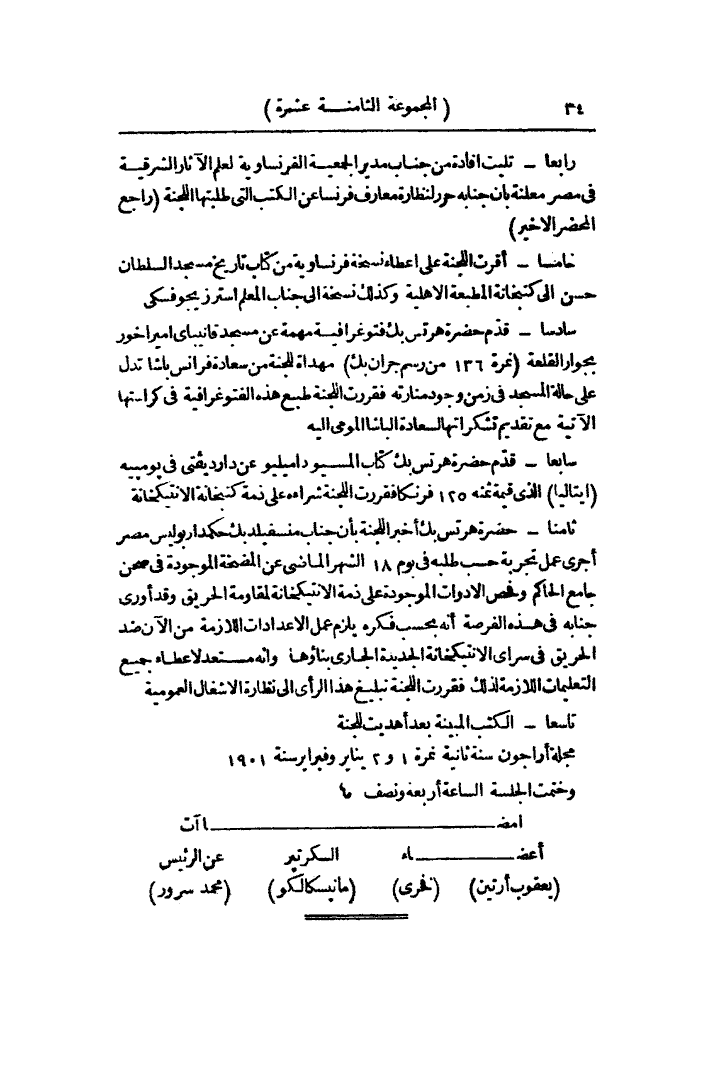 ٣٤ (المجموعة الثامنة عشرة)
رابعا – تليت افادة من جناب مدير الجمعية الفرنساوية لعلم الآثار الشرقية
فى مصر معلنة بان جنابه حرر لنظارة معارف فرنسا عن الكتب التى طلبتها اللجنة (راجع
المحضر الاخير)
خامسا – أقرت اللجنة على اعطاء نسخة فرنساوية من كتاب تاريخ مسجد السلطان
حسن الى كتبخانة المطبعة الاهلية وكذلك نسخة الى جناب المعلم استرزيجوفسكى
سادسا – قدّم حضرة هرتس بك فتوغرافية مهمة عن مسجد قانيباى اميراخور
بجوار القلعة (نمرة ١٣٦ من رسم جران بك) مهداة للجنة من سعادة فرانس باشا تدل
على حالة المسجد فى زمن وجود منارته فقررت اللجنة طبع هذه الفتوغرافية فى كراستها
الآتية مع تقديم تشكراتها لسعادة الباشا المومى اليه
سابعا – قدّم حضرة هرتس بك كتاب المسيو داميليو عن دار ديڤتى فى يومپيه
(ايتاليا) الذى قيمة ثمنه ١٢٥ فرنكا فقررت اللجنة شراءه على ذمة كتبخانة الانتيكخانة
ثامنا – حضرة هرتس بك أخبر اللجنة بأن جناب منسفيلد بك حكمدار بوليس مصر
أجرى عمل تجربة حسب طلبه فى يوم ١٨ الشهر الماضى عن المضخة الموجودة فى صحن
جامع الحاكم وفحص الادوات الموجودة على ذمة الانتيكخانة لمقاومة الحريق وقد أورى
جنابه فى هذه الفرصة أنه بحسب فكره يلزم عمل الاعدادات اللازمة من الآن ضد
الحريق فى سراى الانتيكخانة الجديدة الجارى بناؤها وانه مستعد لاعطاء جميع
التعليمات اللازمة لذلك فقررت اللجنة تبليغ هذا الرأى الى نظارة الاشغال العمومية
تاسعا – الكتب المبينة بعد أهديت للجنة
مجلة أراجون سنة ثانية نمرة ١ و ٢ يناير وفبراير سنة ١٩٠١
وختمت الجلسة الساعة أربعة ونصف
امضاآت
أعضاء السكرتير عن الرئيس
(يعقوب أرتين) (فخرى) (مانيسكالكو) (محمد سرور)